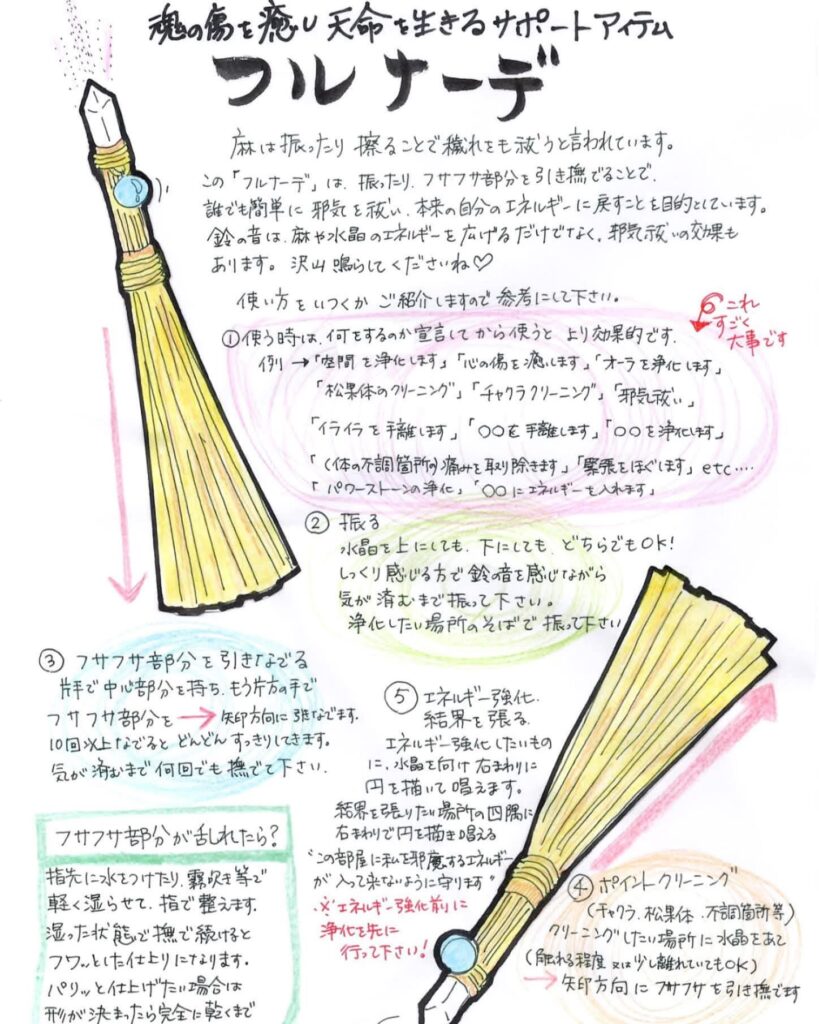 魂の傷を癒し天命を生きるサポートアイテム
フルナーデ
麻は振ったり擦ることで穢れをも祓うと言われています。
この「フルナーデ」は、振ったり、フサフサ部分を引き撫でることで、
誰でも簡単に邪気を祓い、本来の自分のエネルギーに戻すことを目的としています。
鈴の音は、麻や水晶のエネルギーを広げるだけでなく、邪気祓いの効果も
あります。沢山鳴らしてくださいね♡
使い方をいくつかご紹介しますので参考にして下さい。
これ
すごく
大事です
①使う時は、何をするのか宣言してから使うとより効果的です。
例→「空間を浄化します」「心の傷を癒します」「オーラを浄化します」
「松果体のクリーニング」「チャクラクリーニング」「邪気祓い」
「イライラを手離します」「○○を手離します」「○○を浄化します」
「(体の不調箇所の)痛みを取り除きます」「緊張をほぐします」etc‥‥
「パワーストーンの浄化」「○○にエネルギーを入れます」
② 振る
水晶を上にしても、下にしても、どちらでもOK!
しっくり感じる方で鈴の音を感じながら
気が済むまで振って下さい。
浄化したい場所のそばで振って下さい
③ フサフサ部分を引きなでる
片手で中心部分を持ち、もう片方の手で
フサフサ部分を→矢印方向に引きなでます。
10回以上なでるとどんどんすっきりしてきます。
気が済むまで何回でも撫でて下さい。
フサフサ部分が乱れたら?
指先に水をつけたり、霧吹き等で
軽く湿らせて、指で整えます。
湿った状態で撫で続けると
フワッとした仕上りになります。
パリッと仕上げたい場合は
形が決まったら完全に乾くまで
⑤ エネルギー強化、
結界を張る
エネルギー強化したいもの
に、水晶を向け右まわりに
円を描いて唱えます。
結界を張りたい場所の四隅に
右まわりで円を描き唱える
"この部屋に私を邪魔するエネルギー
が入って来ないように守ります"
※エネルギー強化前に
浄化を先に
行って下さい!
④ ポイントクリーニング
(チャクラ、松果体、不調箇所等)
クリーニングしたい場所に水晶をあて
(触れる程度又は少し離れていてもOK)
→矢印方向にフサフサを引き撫でます